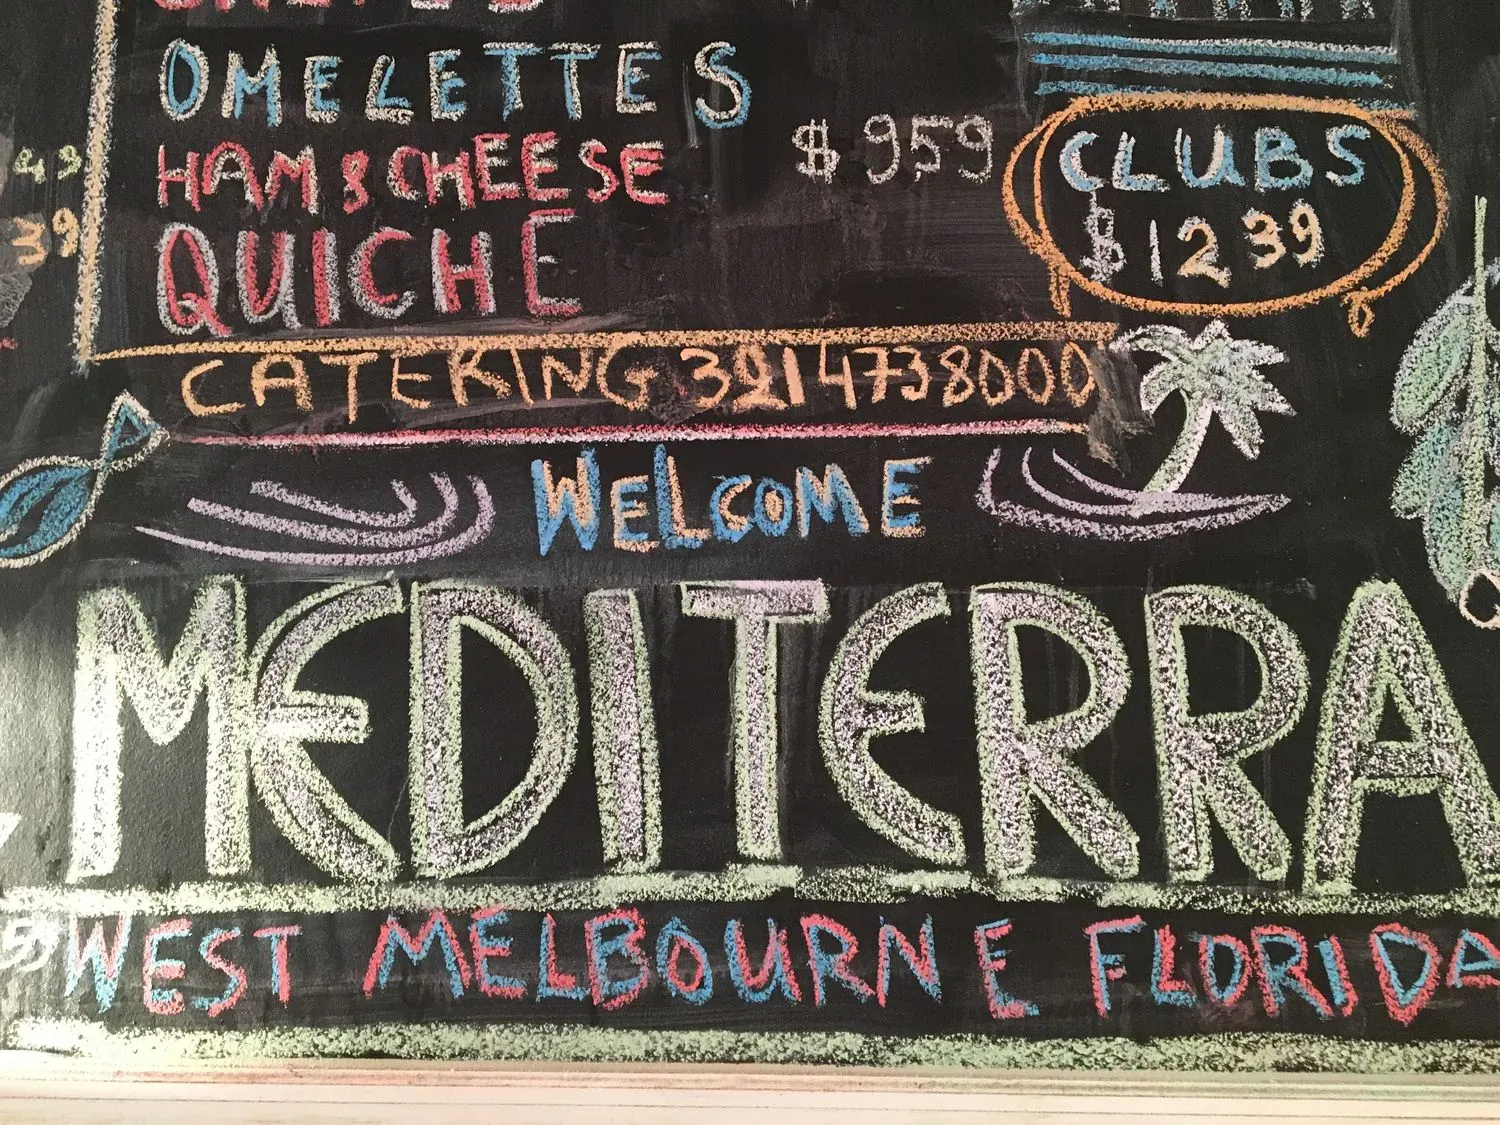 OMELETTES
HAM & CHEESE $ 959
QUICHE
CLUBS
$ 12 39
49
39
CATERING 321 473 8000
WELCOME
MEDITERRA
WEST MELBOURNE FLORIDA